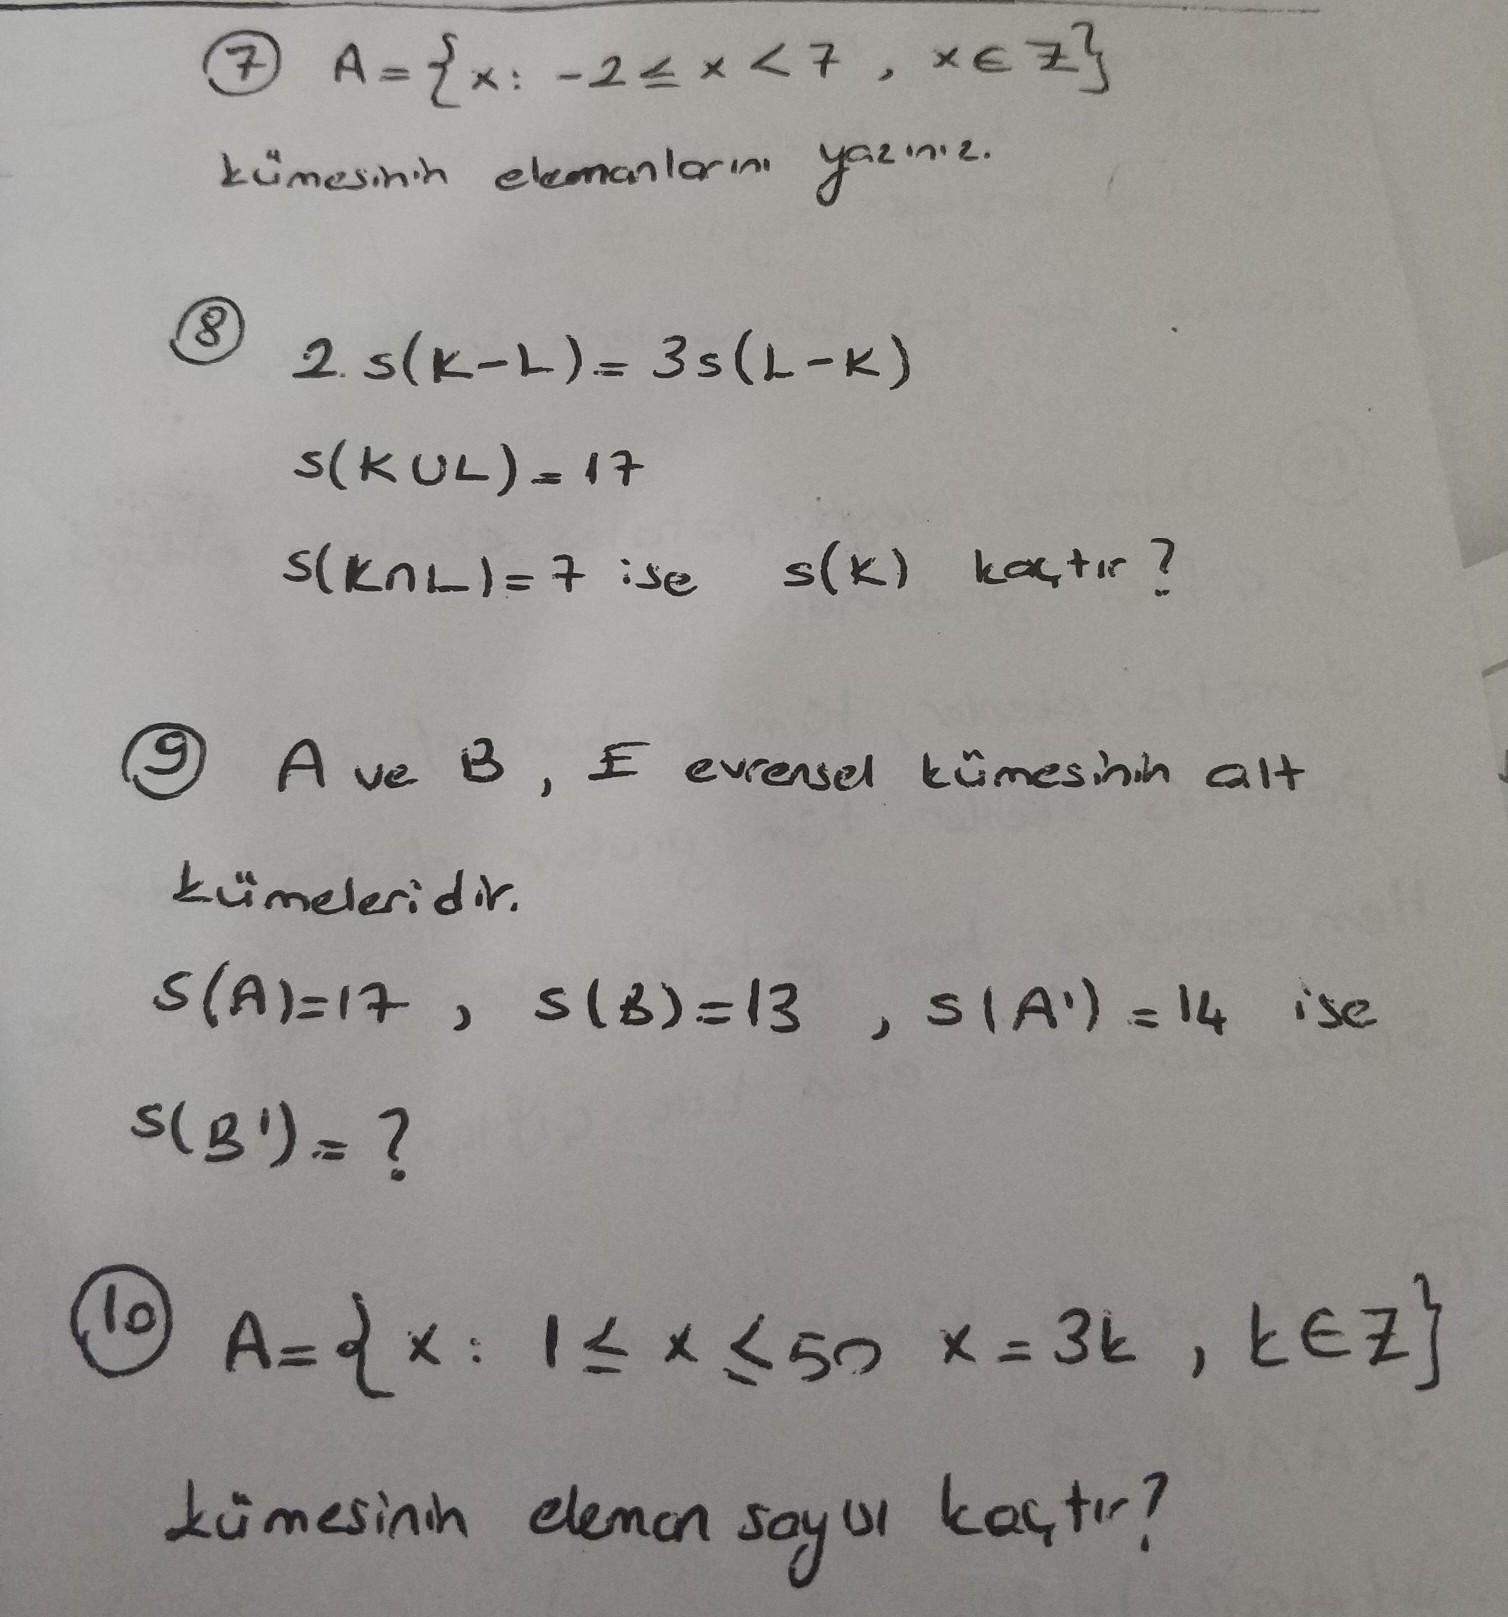 7 A={x: -2≤x<7, x∈Z}
kümesinin elemanlarını yazınız.
8 2.s(K-L)=3s(L-K)
s(K∪L)=17
s(K∩L)=7 ise s(K) kaçtır?
9 A ve B, E evrensel kümesinin alt
kümeleridir.
s(A)=17, s(B)=13, s(A')=14 ise
s(B')=?
10 A={x: 1≤x≤50 x=3k, k∈Z}
kümesinin eleman sayısı kaçtır?